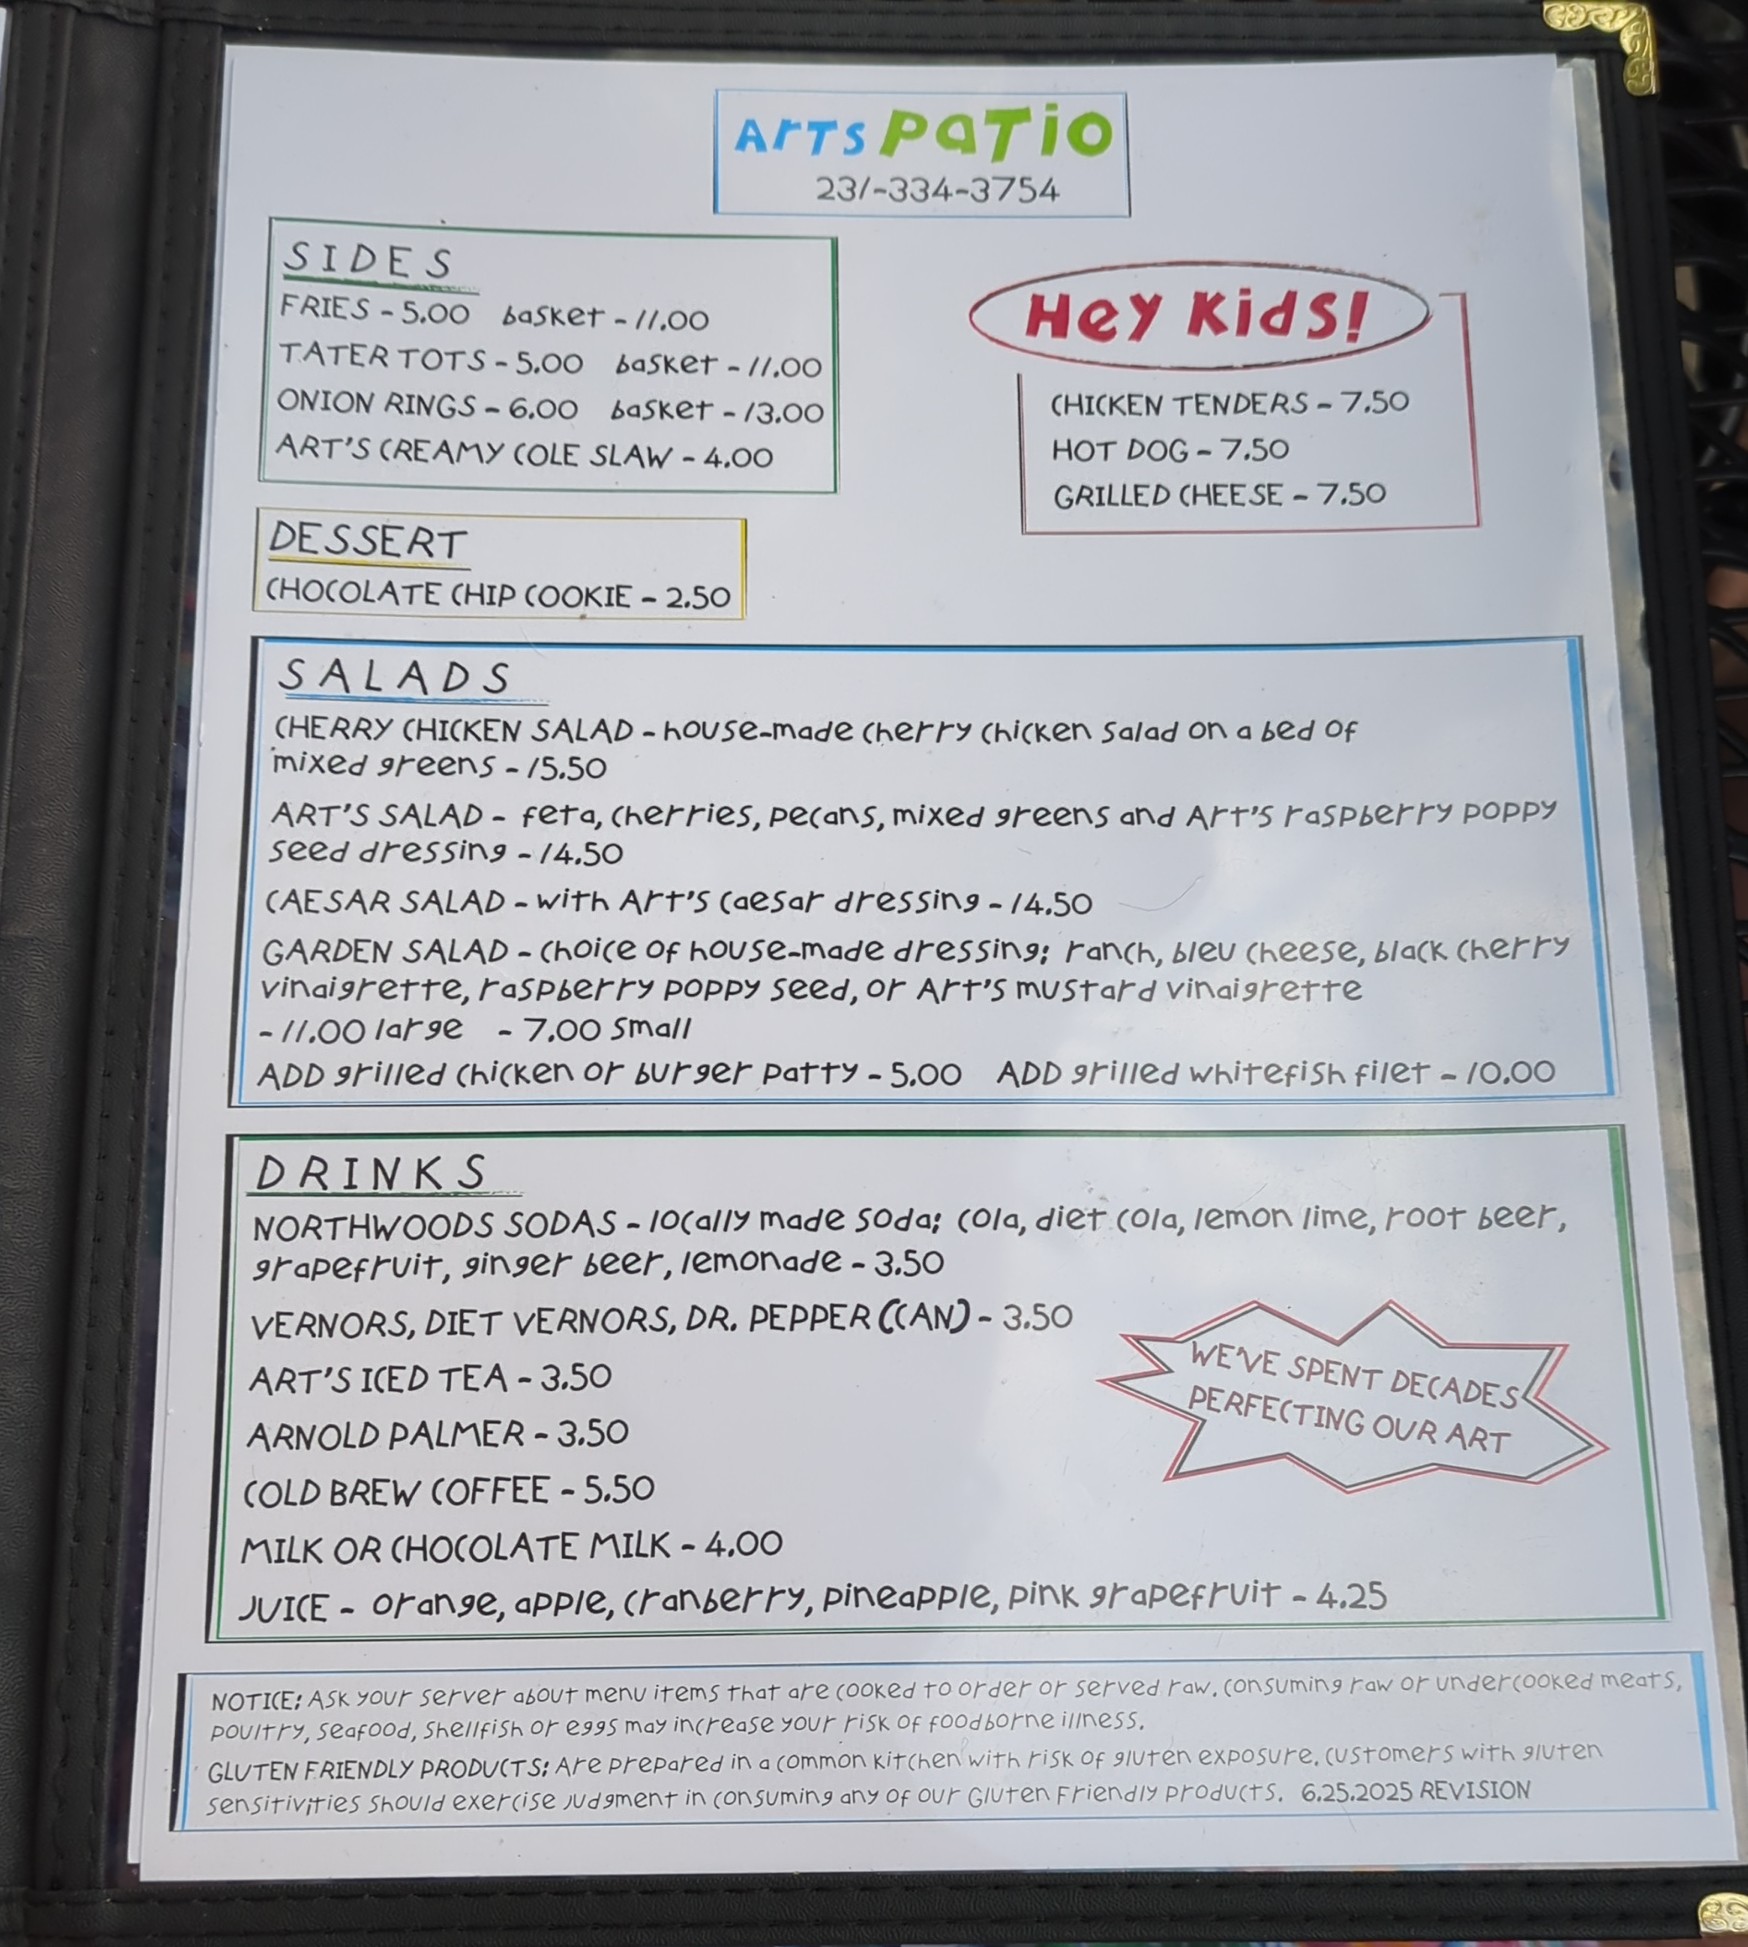 Arts Patio
231-334-3754
SIDES
FRIES - 5.00 basket - 11.00
TATER TOTS - 5.00 basket - 11.00
ONION RINGS - 6.00 basket - 13.00
ART'S CREAMY COLE SLAW - 4.00
Hey Kids!
CHICKEN TENDERS - 7.50
HOT DOG - 7.50
GRILLED CHEESE - 7.50
DESSERT
CHOCOLATE CHIP COOKIE - 2.50
SALADS
CHERRY CHICKEN SALAD - house-made cherry chicken salad on a bed of
mixed greens - 15.50
ART'S SALAD - feta, cherries, pecans, mixed greens and Art's raspberry poppy
seed dressing - 14.50
CAESAR SALAD - with Art's caesar dressing - 14.50
GARDEN SALAD - choice of house-made dressing: ranch, bleu cheese, black cherry
vinaigrette, raspberry poppy seed, or Art's mustard vinaigrette
- 11.00 large - 7.00 small
ADD grilled chicken or burger patty - 5.00 ADD grilled whitefish filet - 10.00
DRINKS
NORTHWOODS SODAS - locally made soda: cola, diet cola, lemon lime, root beer,
grapefruit, ginger beer, lemonade - 3.50
VERNORS, DIET VERNORS, DR. PEPPER (CAN) - 3.50
ART'S ICED TEA - 3.50
ARNOLD PALMER - 3.50
COLD BREW COFFEE - 5.50
MILK OR CHOCOLATE MILK - 4.00
JUICE - orange, apple, cranberry, pineapple, pink grapefruit - 4.25
WE'VE SPENT DECADES
PERFECTING OUR ART
NOTICE: Ask your server about menu items that are cooked to order or served raw. Consuming raw or undercooked meats,
poultry, seafood, shellfish or eggs may increase your risk of foodborne illness.
GLUTEN FRIENDLY PRODUCTS: Are prepared in a common kitchen with risk of gluten exposure. Customers with gluten
sensitivities should exercise judgment in consuming any of our Gluten Friendly products. 6.25.2025 REVISION